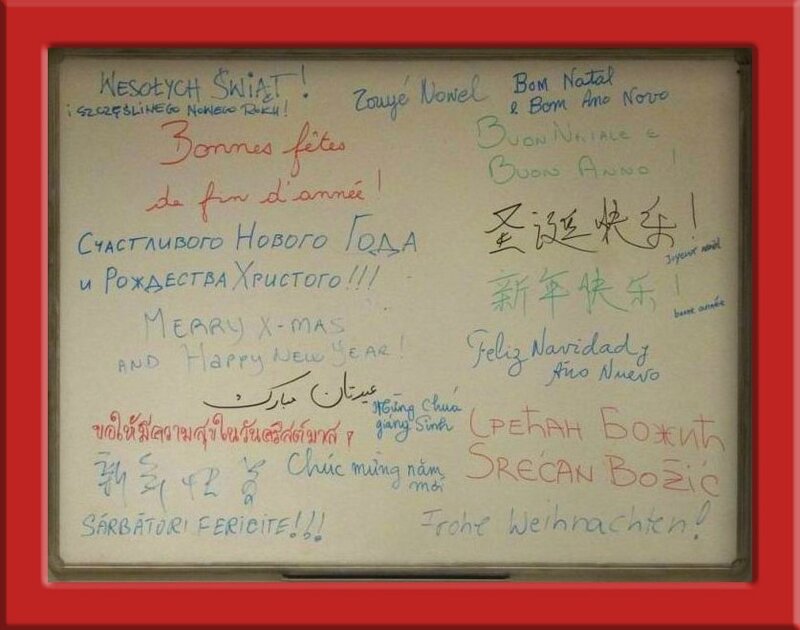 WESOŁYCH ŚWIĄT!
i SZCZĘŚLIWEGO NOWEGO ROKU!
Zouyé Nowel
Bom Natal
e Bom Ano Novo
Bonnes fêtes
de fin d'année!
BUON NATALE E
BUON ANNO!
Счастливого Нового Года
и Рождества Христого!!!
圣诞快乐!
Joyeux noël
新年快乐!
bonne année
MERRY X-MAS
AND Happy NEW YEAR!
Feliz Navidad y
Año Nuevo
عیدتان مبارک
Mừng Chúa
giáng Sinh
ขอให้มีความสุขในวันคริสต์มาส
Срећан Божић
SREĆAN BOŽIĆ
Chúc mừng năm
mới
SĂRBĂTORI FERICITE!!!
Frohe Weihnachten!